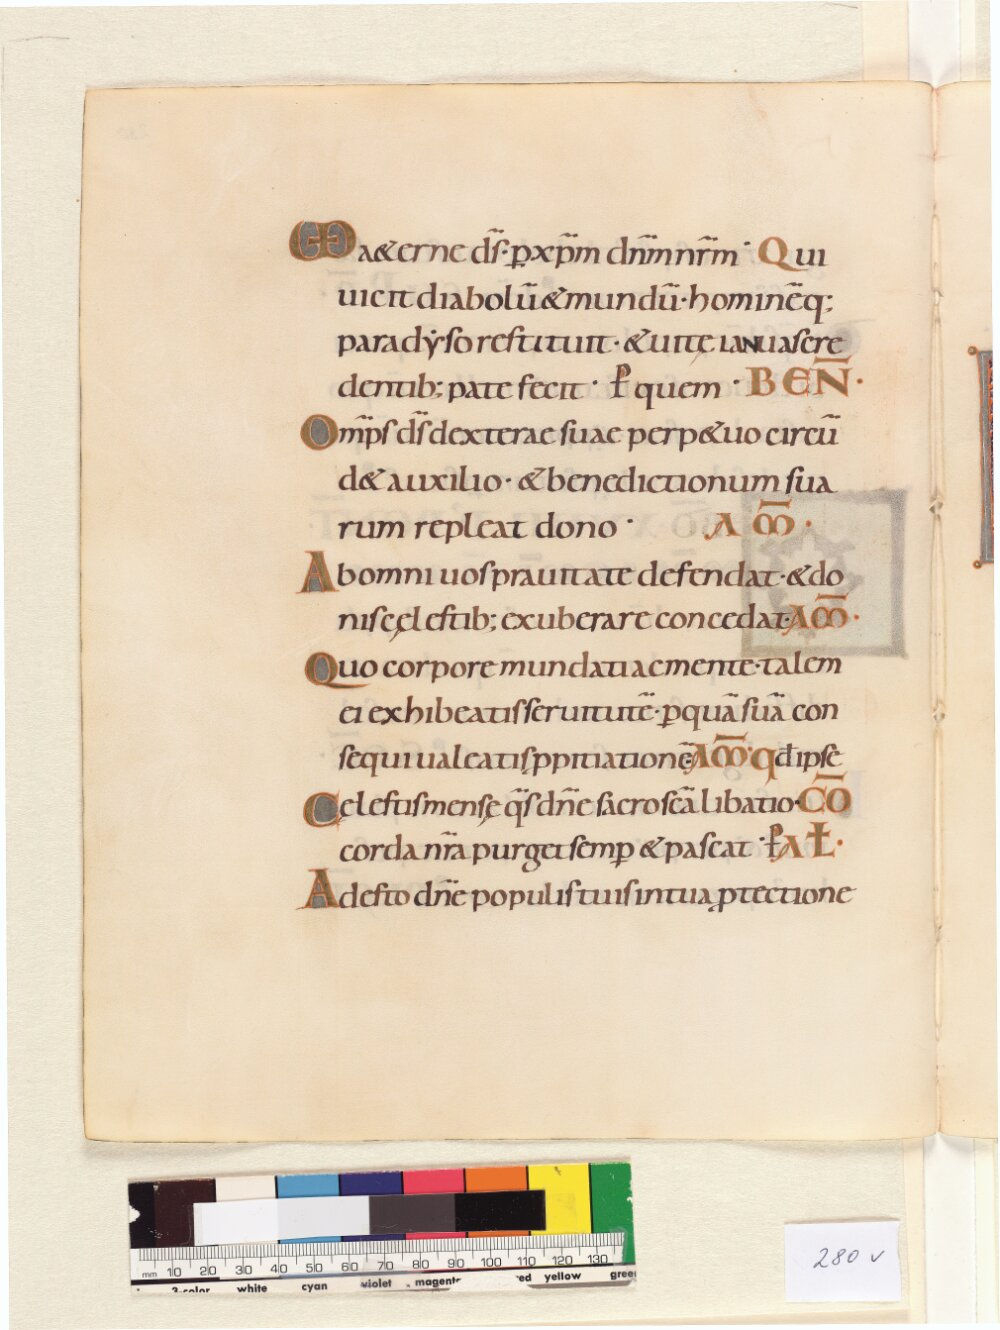 UD a&erne ds̄· ꝑ xp̄m dn̄m nr̄m· Qui
uicit diabolū & mundū· hominēq;
paradẏso restituit· & uitę ianuas cre
dentib; pate fecit· P̄ quem· BEN̄·
Om̄ps ds̄ dexterae suae perp&uo circū
d& auxilio· & benedictionum sua
rum repleat dono· AM̄·
Ab omni uos prauitate defendat· & do
nis cęlestib; exuberare concedat· AM̄·
Quo corpore mundati ac mente· talem
ei exhibeatis seruitutē· ꝑ quā suā con
sequi ualeatis ꝓpitiationē· AM̄· qđ ipse
Celestis mensę q̄s dn̄e sacroscā libatio· CŌ
corda nr̄a purget semꝑ & pascat· P̄ AŁ·
Adesto dn̄e populis tuis in tua ꝓtectione
280 v
mm 10 20 30 40 50 60 70 80 90 100 110 120 130
3-color white cyan violet magenta red yellow green